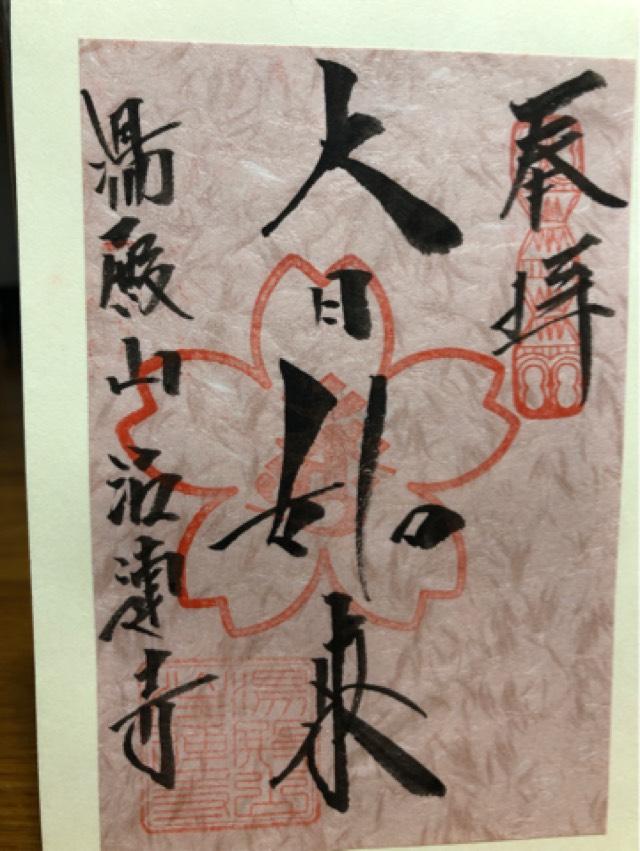 奉拝
大日如来
湯殿山注連寺